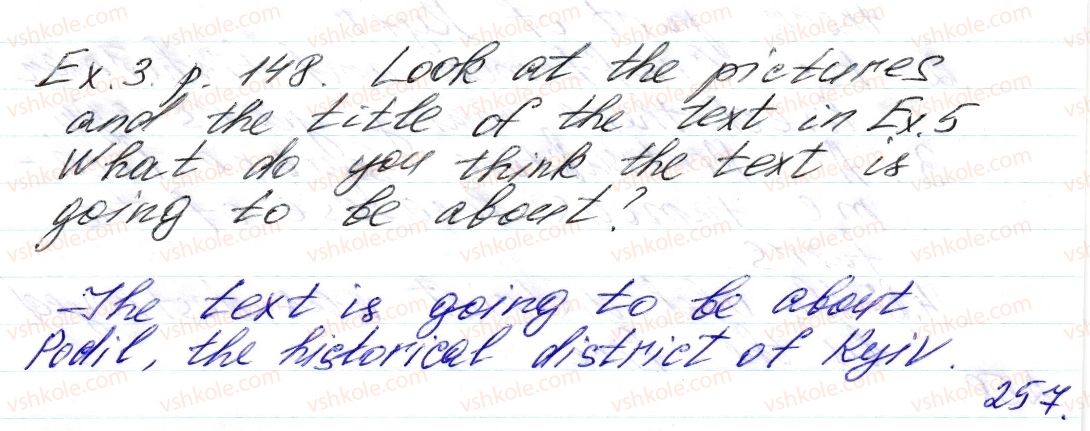 Ex. 3. p. 148. Look at the pictures
and the title of the text in Ex. 5
What do you think the text is
going to be about?
– The text is going to be about
Podil, the historical district of Kyiv.
257.